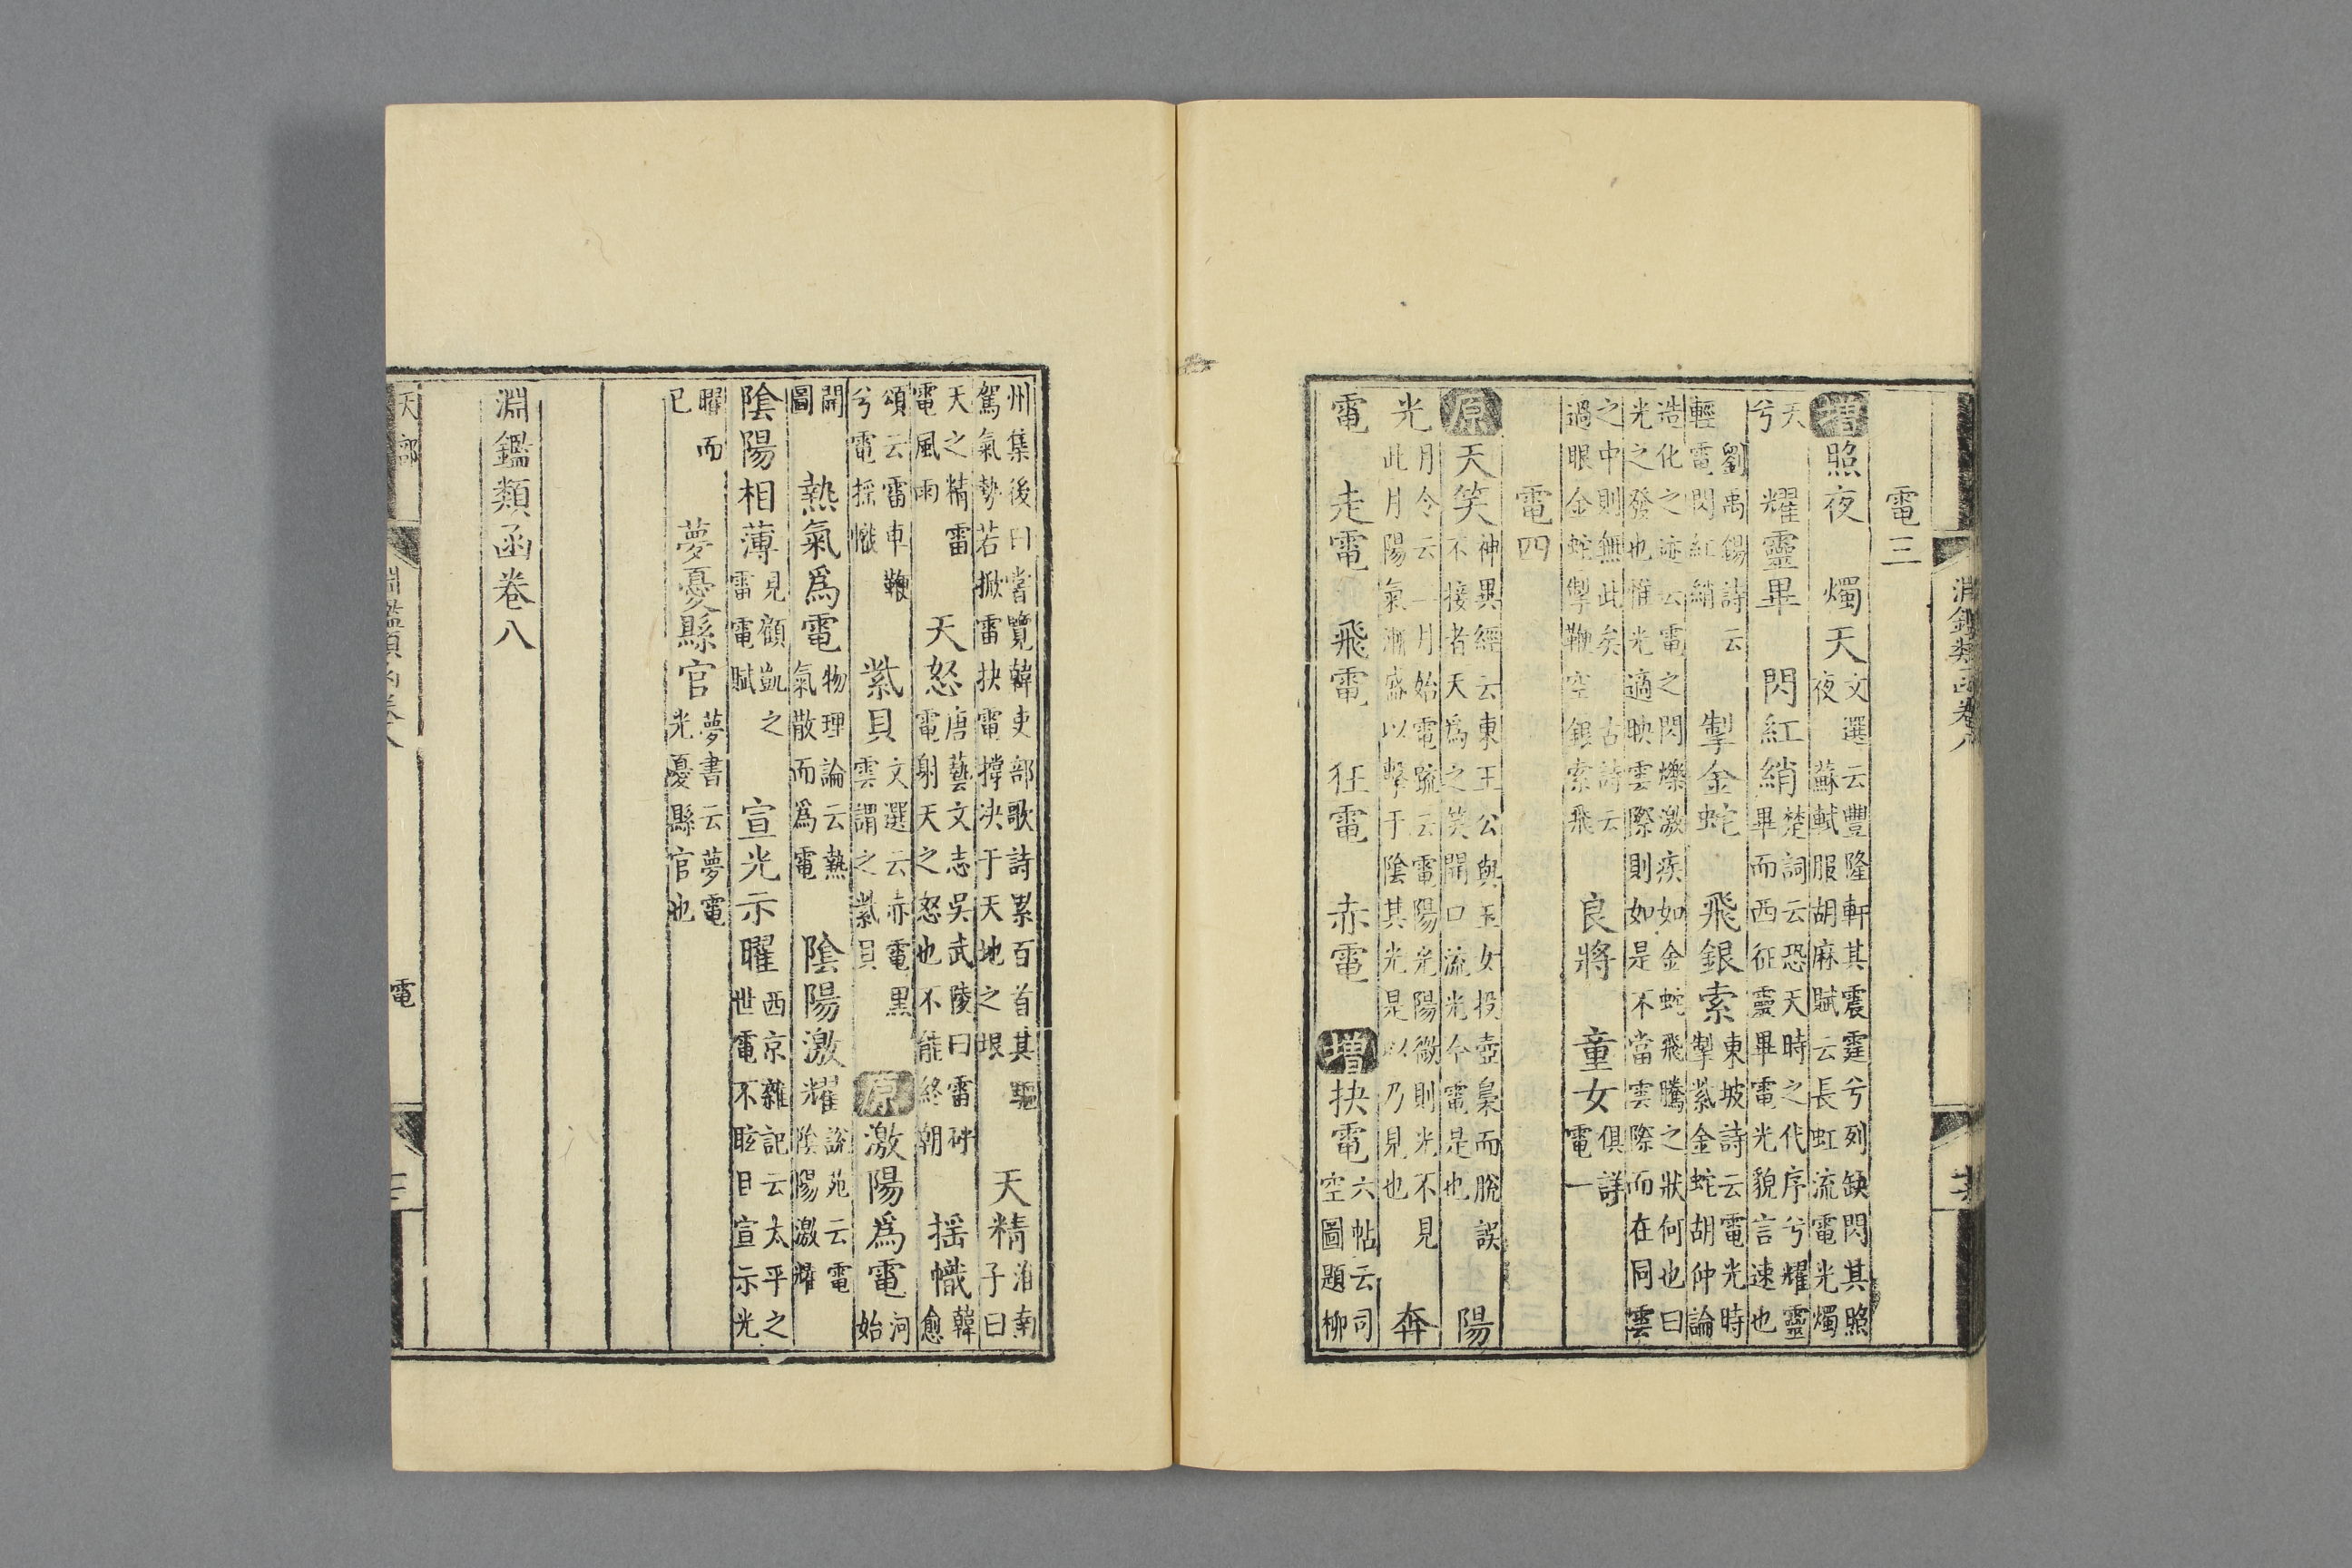 淵鑑類函卷八
電三
增照夜　燭天文選云豐隆軒其震霆兮列缺閃其照
夜　蘇軾服胡麻賦云長虹流電光燭
天　耀靈畢　閃紅綃楚詞云恐天時之代序兮耀靈
兮　畢而西征靈畢電光貌言速也
劉禹錫詩云
輕電閃紅綃　掣金蛇　飛銀索東坡詩云電光時
掣紫金蛇胡仲論
造化之迹云電之閃爍激疾如金蛇飛騰之狀何也曰
光之發也惟光適映雲際則如是不當雲際而在同雲
之中則無此矣　古詩云
過眼金蛇掣鞭空銀索飛　良將　童女俱詳
電一
電四
原天笑神異經云東王公與玉女投壺梟而脫誤
不接者天為之笑開口流光今電是也　陽
光月令云二月始電疏云電陽光陽微則光不見
此月陽氣漸盛以擊于陰其光是以乃見也　奔
電　走電　飛電　狂電　赤電　增抉電六帖云司
空圖題柳
州集後曰嘗覽韓吏部歌詩累百首其驅
駕氣勢若掀雷抉電撐決于天地之垠　天精淮南
子曰
天之精雷
電風雨　天怒唐藝文志吳武陵曰雷砰
電射天之怒也不能終朝　搖幟韓
愈
頌云雷車鞭
兮電搖幟　紫貝文選云赤電黑
雲謂之紫貝　原激陽為電河
始
開
圖　熱氣爲電物理論云熱
氣散而爲電　陰陽激耀說苑云電
陰陽激耀
陰陽相薄見顧凱之
雷電賦　宣光示曜西京雜記云太平之
世電不眩目宣示光
曜而
已　夢憂縣官夢書云夢電
光憂縣官也
淵鑑類函卷八
天部
淵鑑類函卷八
電